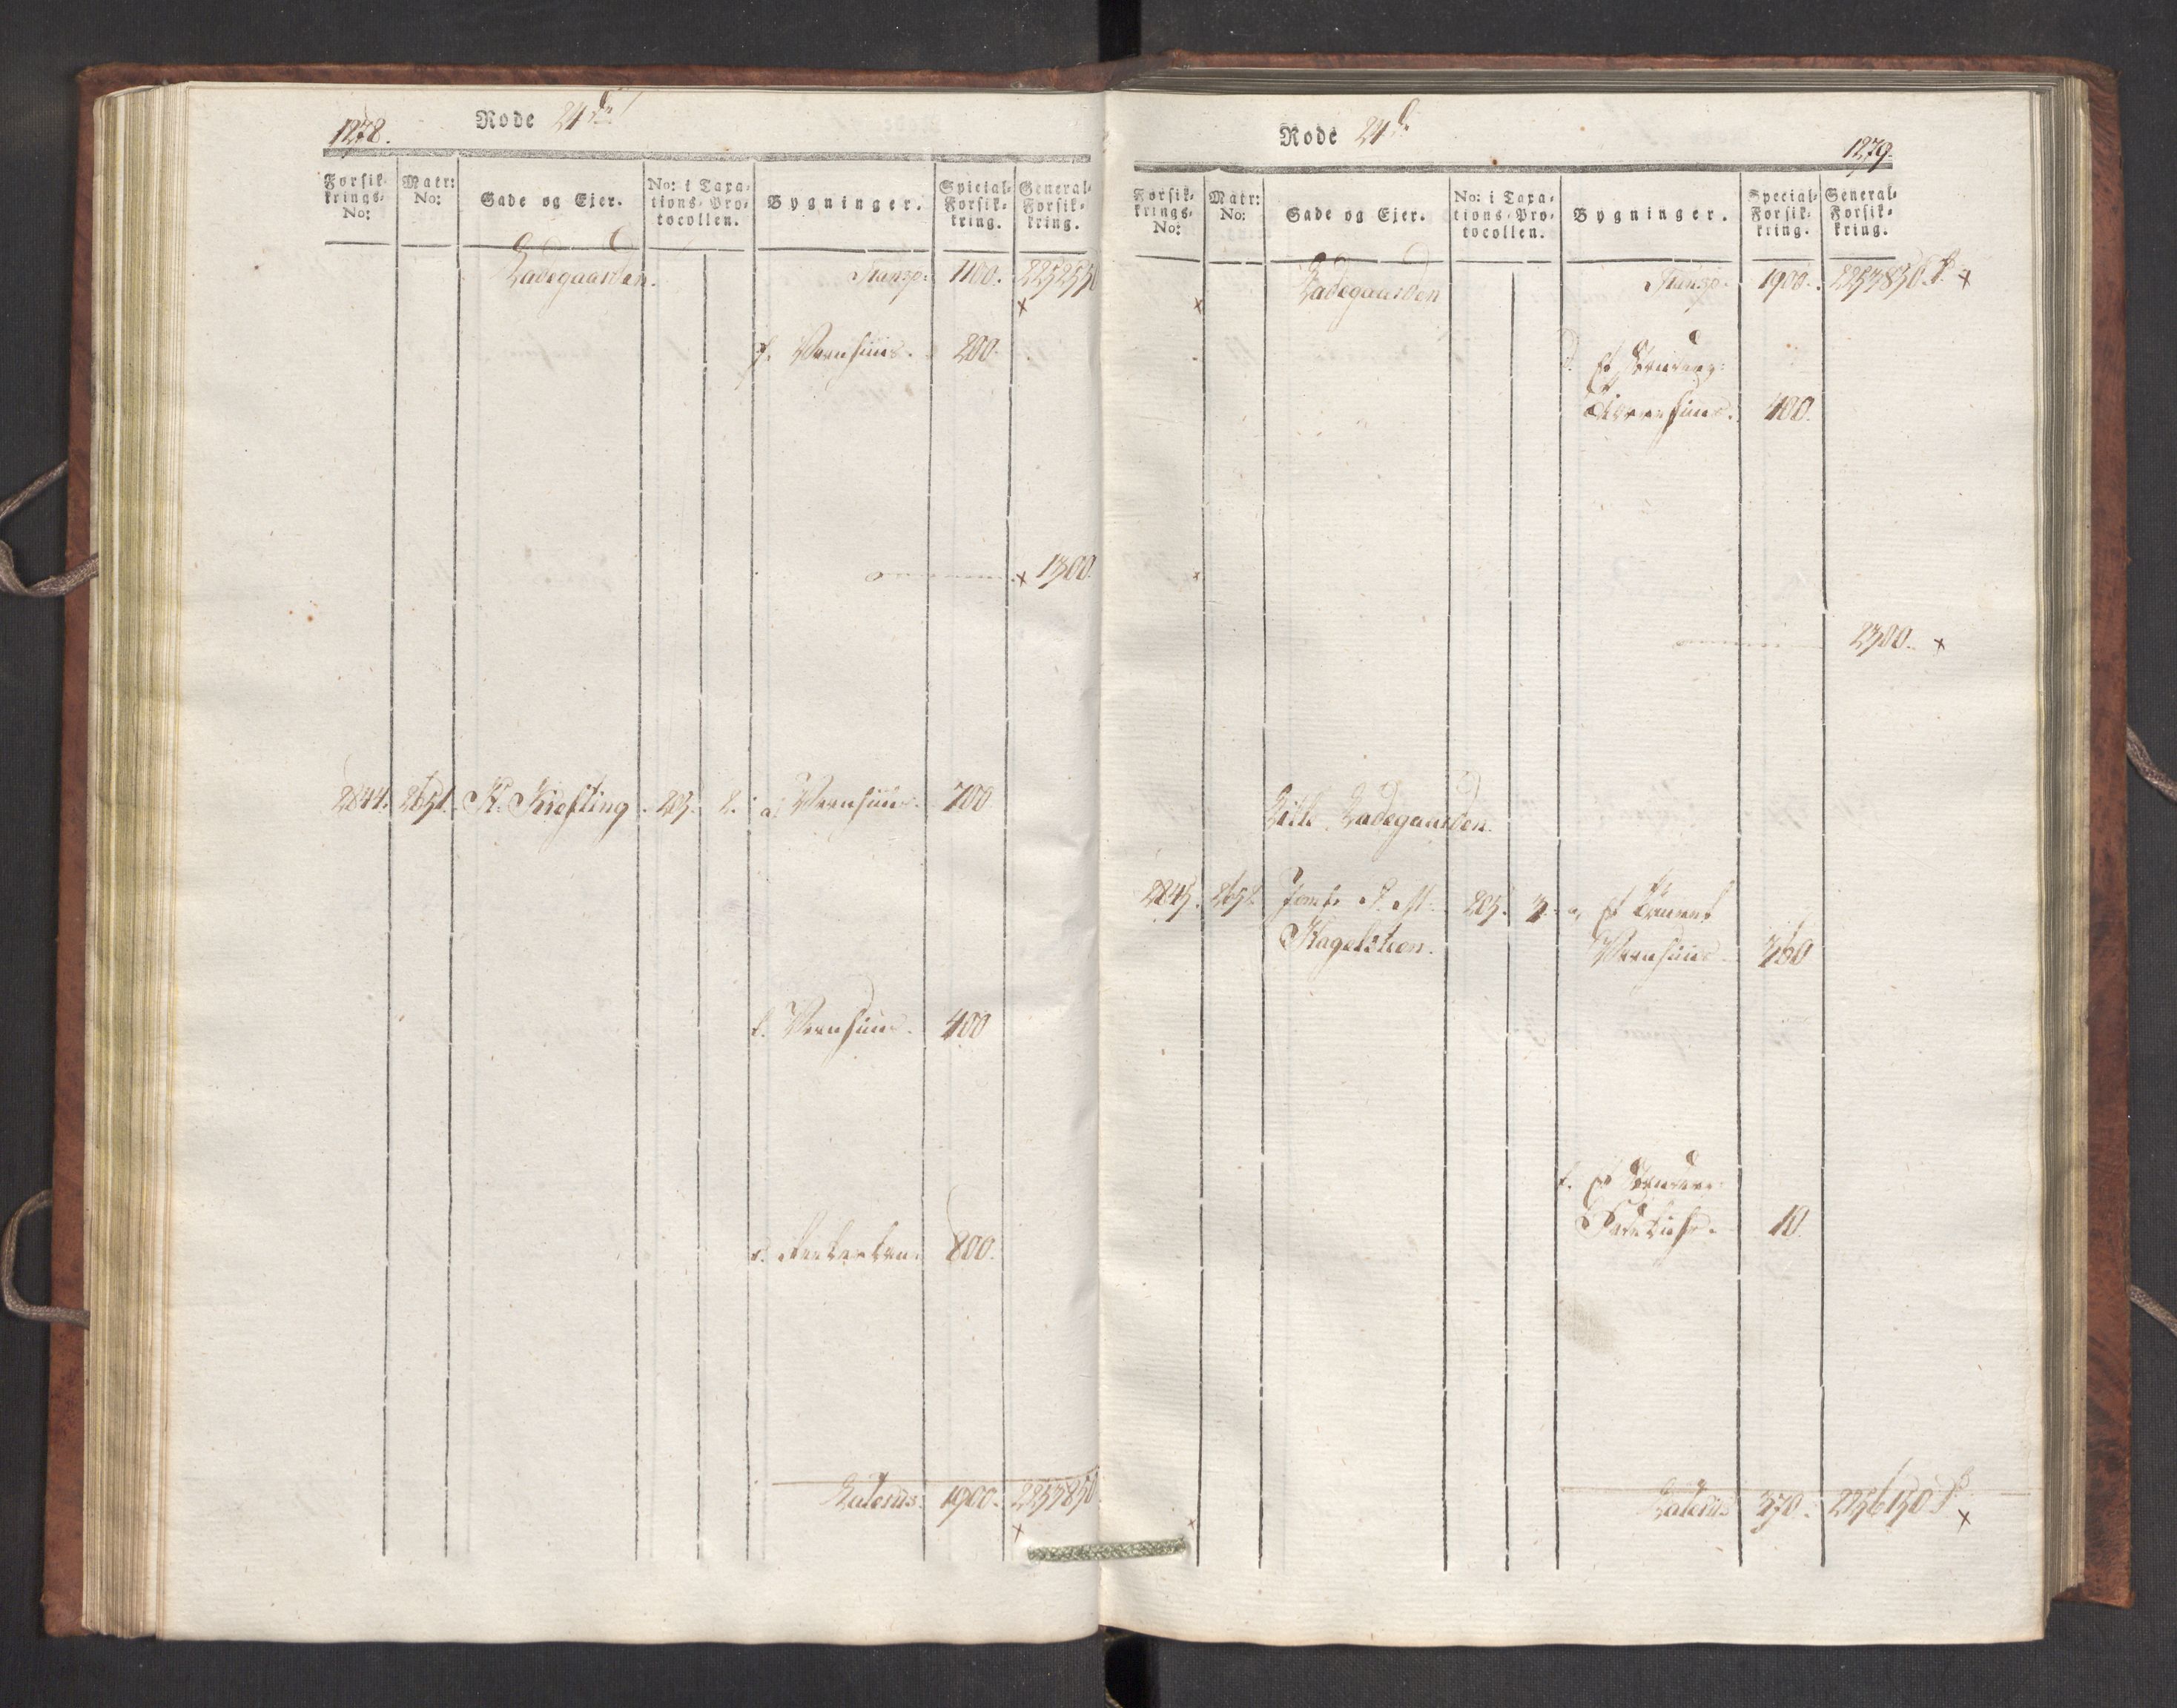 1278.
Rode 24de
Forsik-
krings-
No:
Matr:
No:
Gade og Ejer.
No: i Taxa-
tions-Pro-
tocollen.
Bygninger.
Special-
Forsik-
kring.
General-
Forsik-
kring.
Ladegaarden. Transp: 1100. 2252550
f. Vaanhuus. 200.
1300.
2844. 2651. K. Kiefting. 203. 2. a. Vaanhuus. 700
b. Vaanhuus. 400
c. 800.
Laterus: 1900. 2253850
Rode 24de
1279.
Forsik-
krings-
No:
Matr:
No:
Gade og Ejer.
No: i Taxa-
tions-Pro-
tocollen.
Bygninger.
Special-
Forsik-
kring.
General-
Forsik-
kring.
Ladegaarden Transp: 1900. 2253850
d. Et
400.
2300.
Lille Ladegaarden.
2845. 2652. Jomfr 203. 3. a. Et
Hagelsteen. Vaanhuus. 360
b. Et
10.
Laterus 370. 2256150